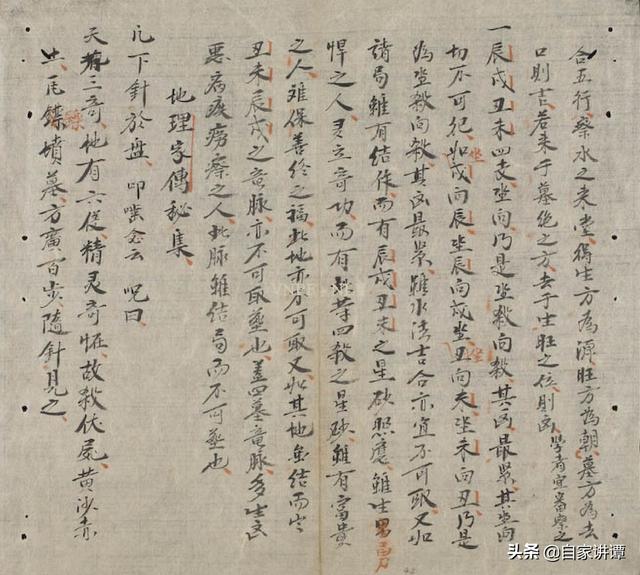 合五行察水之来堂得生方為源旺方為朝墓方為去
口則吉若来于墓絶之方去于生旺之位則凶學者宜審察之
一辰戌丑未四支坐向乃是坐殺向殺其凶最累其坐向
切不可犯如戌向辰坐辰向戌坐丑向未坐未向丑乃是
為坐殺向殺其凶最累雖水法吉合亦宜不可取又如
諸局雖有結作而有辰戌丑未之星砂照應雖生男勇
悍之人灵立奇功而有此等四殺之星砂雖有富貴
之人难保善终之福此地亦不可取又如其地無結而字
丑未辰戌之竜脉亦不可取塟也盖四墓竜脉多生
惡病疾癆瘵之人此脉雖结局而不可塟也
地理家傳秘集
凡下針於盤叩齒念云呪曰
天有三奇地有六儀精灵奇怪故殺伏屍黄沙赤
土瓦鑠墳墓方廣百步隨針見之
头条 @自家讲谭